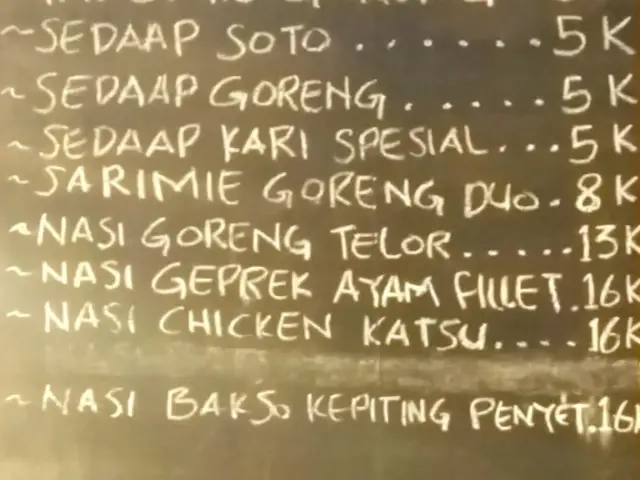 ~SEDAAP SOTO.......5K
~SEDAAP GORENG......5K
~SEDAAP KARI SPESIAL...5K
~SARIMIE GORENG DUO.8K
~NASI GORENG TELOR.....13K
~NASI GEPREK AYAM FILLET.16K
~NASI CHICKEN KATSU....16K
~NASI BAKSO KEPITING PENYET.16K